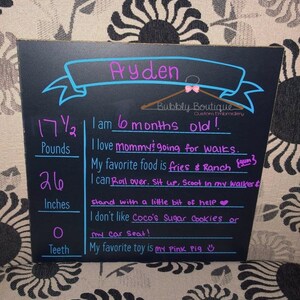 Ayden
Bubbly Boutique
Custom Embroidery
17 1/2
Pounds
26
Inches
0
Teeth
I am 6 months old!
I love mommy! going for walks.
My favorite food is fries & Ranch
I can Roll over. Sit up, Scoot in my walker &
stand with a little bit of help ❤
I don't like Coco's Sugar Cookies or
my car seat!
My favorite toy is my Pink Pig ☺